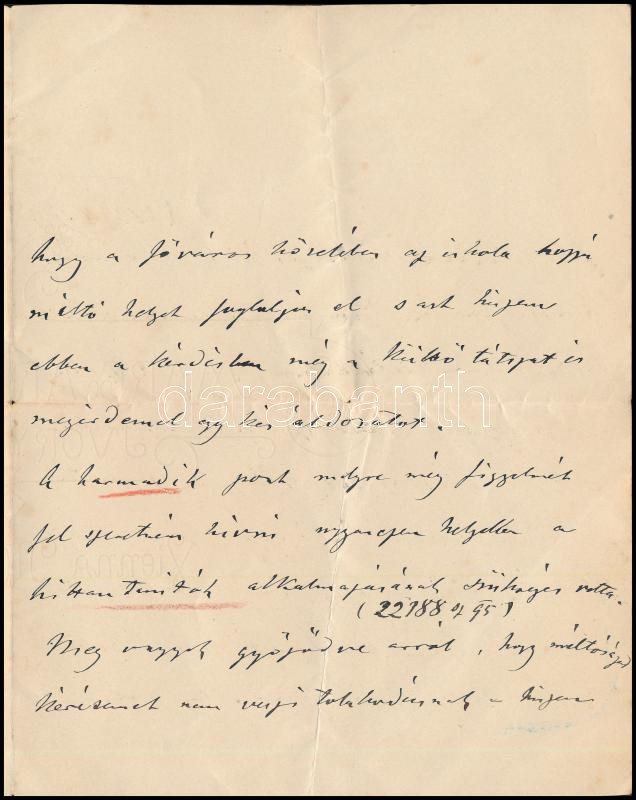 hogy a főváros kőzetében az iskola hozzá
méltó helyet foglaljon el s azt hiszem
ebben a kérdésben még a külső látszat is
megérdemel egy kis áldozatot.
A harmadik pont melyre még figyelmét
fel szeretném hívni ugyancsak helyette a
hittan tanitók alkalmazásának szükséges volta.
(22188 of 95)
Meg vagyok győződve arról, hogy méltóságod
kérésemet nem veszi tolakodásnak – hiszen
darabanth